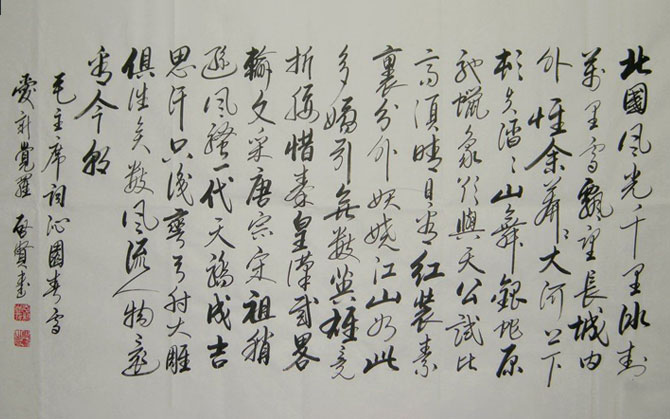 北國風光千里冰封
萬里雪飄望長城内
外惟余莽〻大河上下
頓失滔〻山舞銀蛇原
馳蠟象欲與天公試比
高須晴日看红裝素
裹分外妖娆江山如此
多嬌引無数英雄竞
折腰惜秦皇漢武略
輸文采唐宗宋祖稍
遜风騷一代天驕成吉
思汗只识彎弓射大雕
俱往矣数风流人物還
看今朝
毛主席詞沁園春雪
愛新覺羅啟賢書